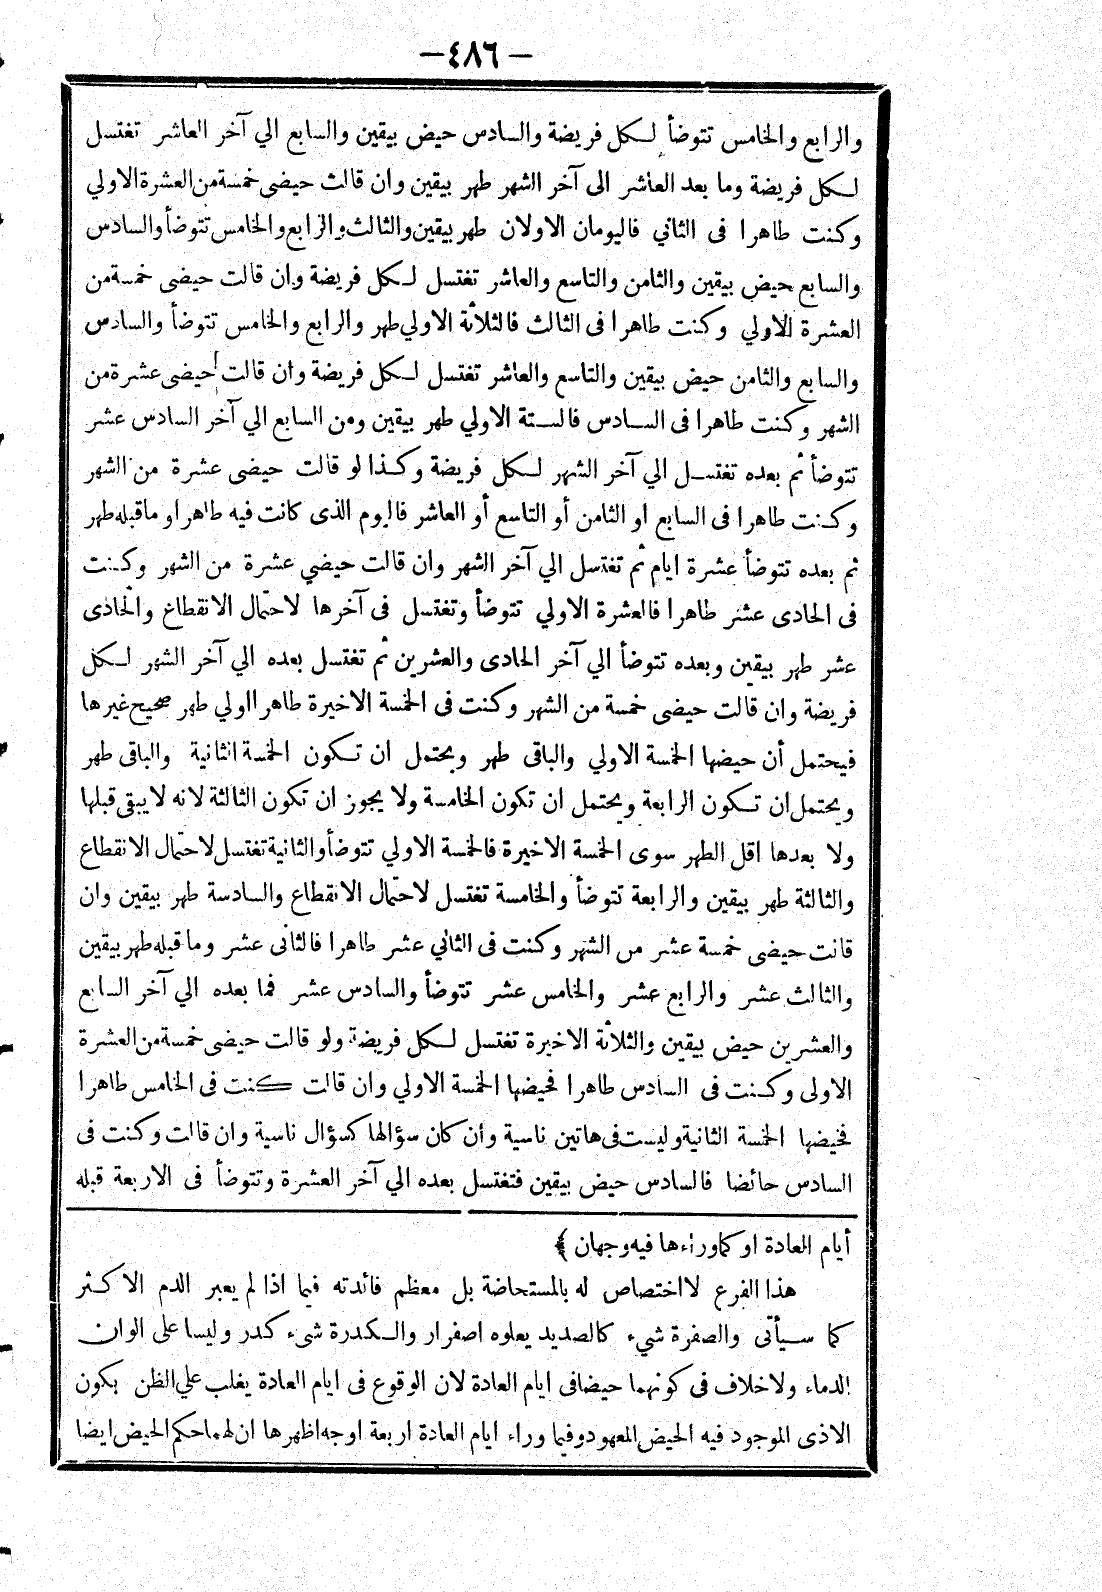 — ٤٨٦ —
والرابع والخامس تتوضأ لكل فريضة والسادس حيض بيقين والسابع الي آخر العاشر تغتسل
لكل فريضة وما بعد العاشر الى آخر الشهر طهر بيقين وان قالت حيضى خمسة من العشرة الاولي
وكنت طاهرا فى الثاني فاليومان الاولان طهر بيقين والثالث والرابع والخامس تتوضأ والسادس
والسابع حيض بيقين والثامن والتاسع والعاشر تغتسل لكل فريضة وان قالت حيضى خمسة من
العشرة الاولي وكنت طاهرا فى الثالث فالثلاثة الاولي طهر والرابع والخامس تتوضأ والسادس
والسابع والثامن حيض بيقين والتاسع والعاشر تغتسل لكل فريضة وان قالت حيضى عشرة من
الشهر وكنت طاهرا فى السادس فالستة الاولي طهر بيقين ومن السابع الي آخر السادس عشر
تتوضأ ثم بعده تغتسل الي آخر الشهر لكل فريضة وكذا لو قالت حيضى عشرة من الشهر
وكنت طاهرا فى السابع او الثامن أو التاسع أو العاشر فاليوم الذى كانت فيه طاهرا وماقبله طهر
ثم بعده تتوضأ عشرة ايام ثم تغتسل الي آخر الشهر وان قالت حيضي عشرة من الشهر وكنت
فى الحادى عشر طاهرا فالعشرة الاولي تتوضأ وتغتسل فى آخرها لاحتمال الانقطاع والحادى
عشر طهر بيقين وبعده تتوضأ الي آخر الحادى والعشرين ثم تغتسل بعده الي آخر الشهر لكل
فريضة وان قالت حيضى خمسة من الشهر وكنت فى الخمسة الاخيرة طاهرا اولي طهر صحيح غيرها
فيحتمل أن حيضها الخمسة الاولي والباقى طهر ويحتمل ان تكون الخمسة الثانية والباقى طهر
ويحتمل ان تكون الرابعة ويحتمل ان تكون الخامسة ولا يجوز ان تكون الثالثة لانه لا يبقى قبلها
ولا بعدها اقل الطهر سوى الخمسة الاخيرة فالخمسة الاولي تتوضأ والثانية تغتسل لاحتمال الانقطاع
والثالثة طهر بيقين والرابعة تتوضأ والخامسة تغتسل لاحتمال الانقطاع والسادسة طهر بيقين وان
قالت حيضى خمسة عشر من الشهر وكنت فى الثاني عشر طاهرا فالثانى عشر وما قبله طهر بيقين
والثالث عشر والرابع عشر والخامس عشر تتوضأ والسادس عشر فما بعده الي آخر السابع
والعشرين حيض بيقين والثلاثة الاخيرة تغتسل لكل فريضة ولو قالت حيضى خمسة من العشرة
الاولى وكنت فى السادس طاهرا فحيضها الخمسة الاولي وان قالت كنت فى الخامس طاهرا
فحيضها الخمسة الثانية وليست فى هاتين ناسية وان كان سؤالها كسؤال ناسية وان قالت وكنت فى
السادس حائضا فالسادس حيض بيقين فتغتسل بعده الي آخر العشرة وتتوضأ فى الاربعة قبله
أيام العادة او كما وراءها فيه وجهان ﴾
هذا الفرع لا اختصاص له بالمستحاضة بل معظم فائدته فيما اذا لم يعبر الدم الاكثر
كما سيأتى والصفرة شيء كالصديد يعلوه اصفرار والكدرة شىء كدر وليسا على الوان
الدماء ولا خلاف فى كونهما حيضا فى ايام العادة لان الوقوع فى ايام العادة يغلب علي الظن بكون
الاذى الموجود فيه الحيض المعهود وفيما وراء ايام العادة اربعة اوجه اظهرها ان لهما حكم الحيض ايضا